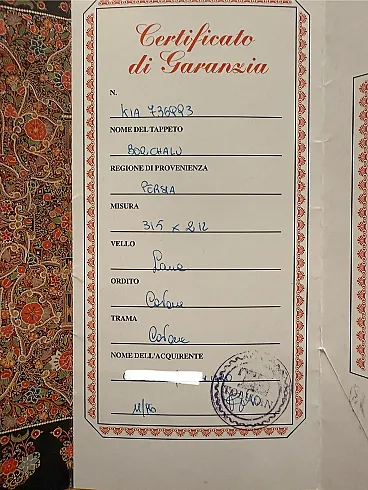 Certificato
di Garanzia
N.
KIA
NOME DEL TAPPETO
BORCHALU
REGIONE DI PROVENIENZA
PERSIA
MISURA
315 x 212
VELLO
Lana
ORDITO
Cotone
TRAMA
Cotone
NOME DELL'ACQUIRENTE